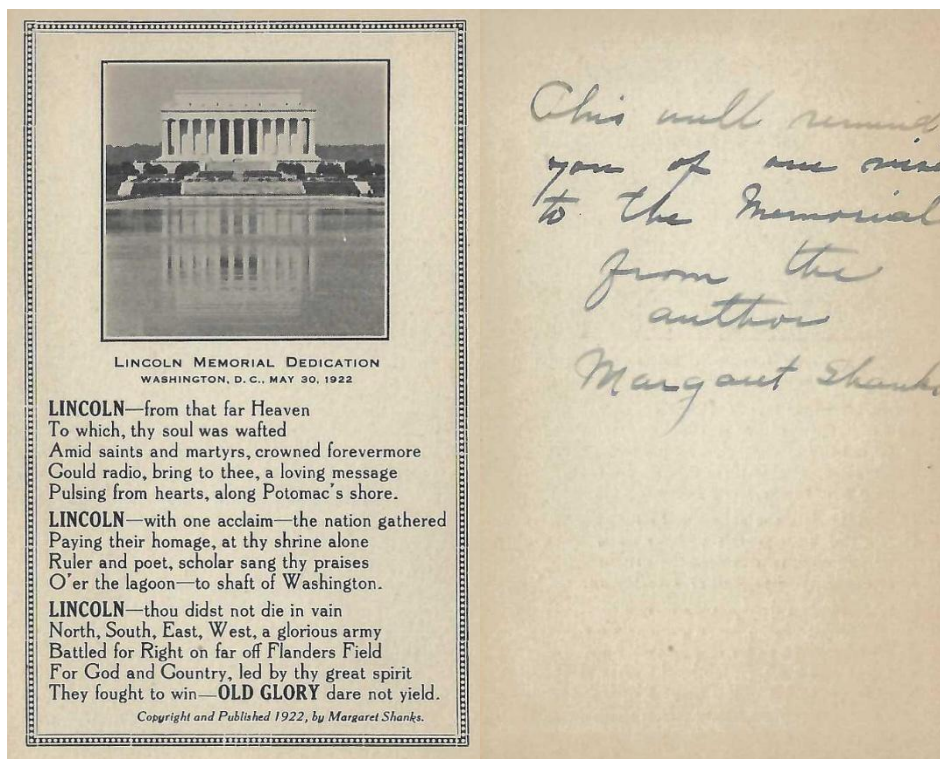 LINCOLN MEMORIAL DEDICATION
WASHINGTON, D. C., MAY 30, 1922
LINCOLN—from that far Heaven
To which, thy soul was wafted
Amid saints and martyrs, crowned forevermore
Could radio, bring to thee, a loving message
Pulsing from hearts, along Potomac's shore.
LINCOLN—with one acclaim—the nation gathered
Paying their homage, at thy shrine alone
Ruler and poet, scholar sang thy praises
O'er the lagoon—to shaft of Washington.
LINCOLN—thou didst not die in vain
North, South, East, West, a glorious army
Battled for Right on far off Flanders Field
For God and Country, led by thy great spirit
They fought to win—OLD GLORY dare not yield.
Copyright and Published 1922, by Margaret Shanks.
This will remind
you of our
to the Memorial
from the
author
Margaret Shanks